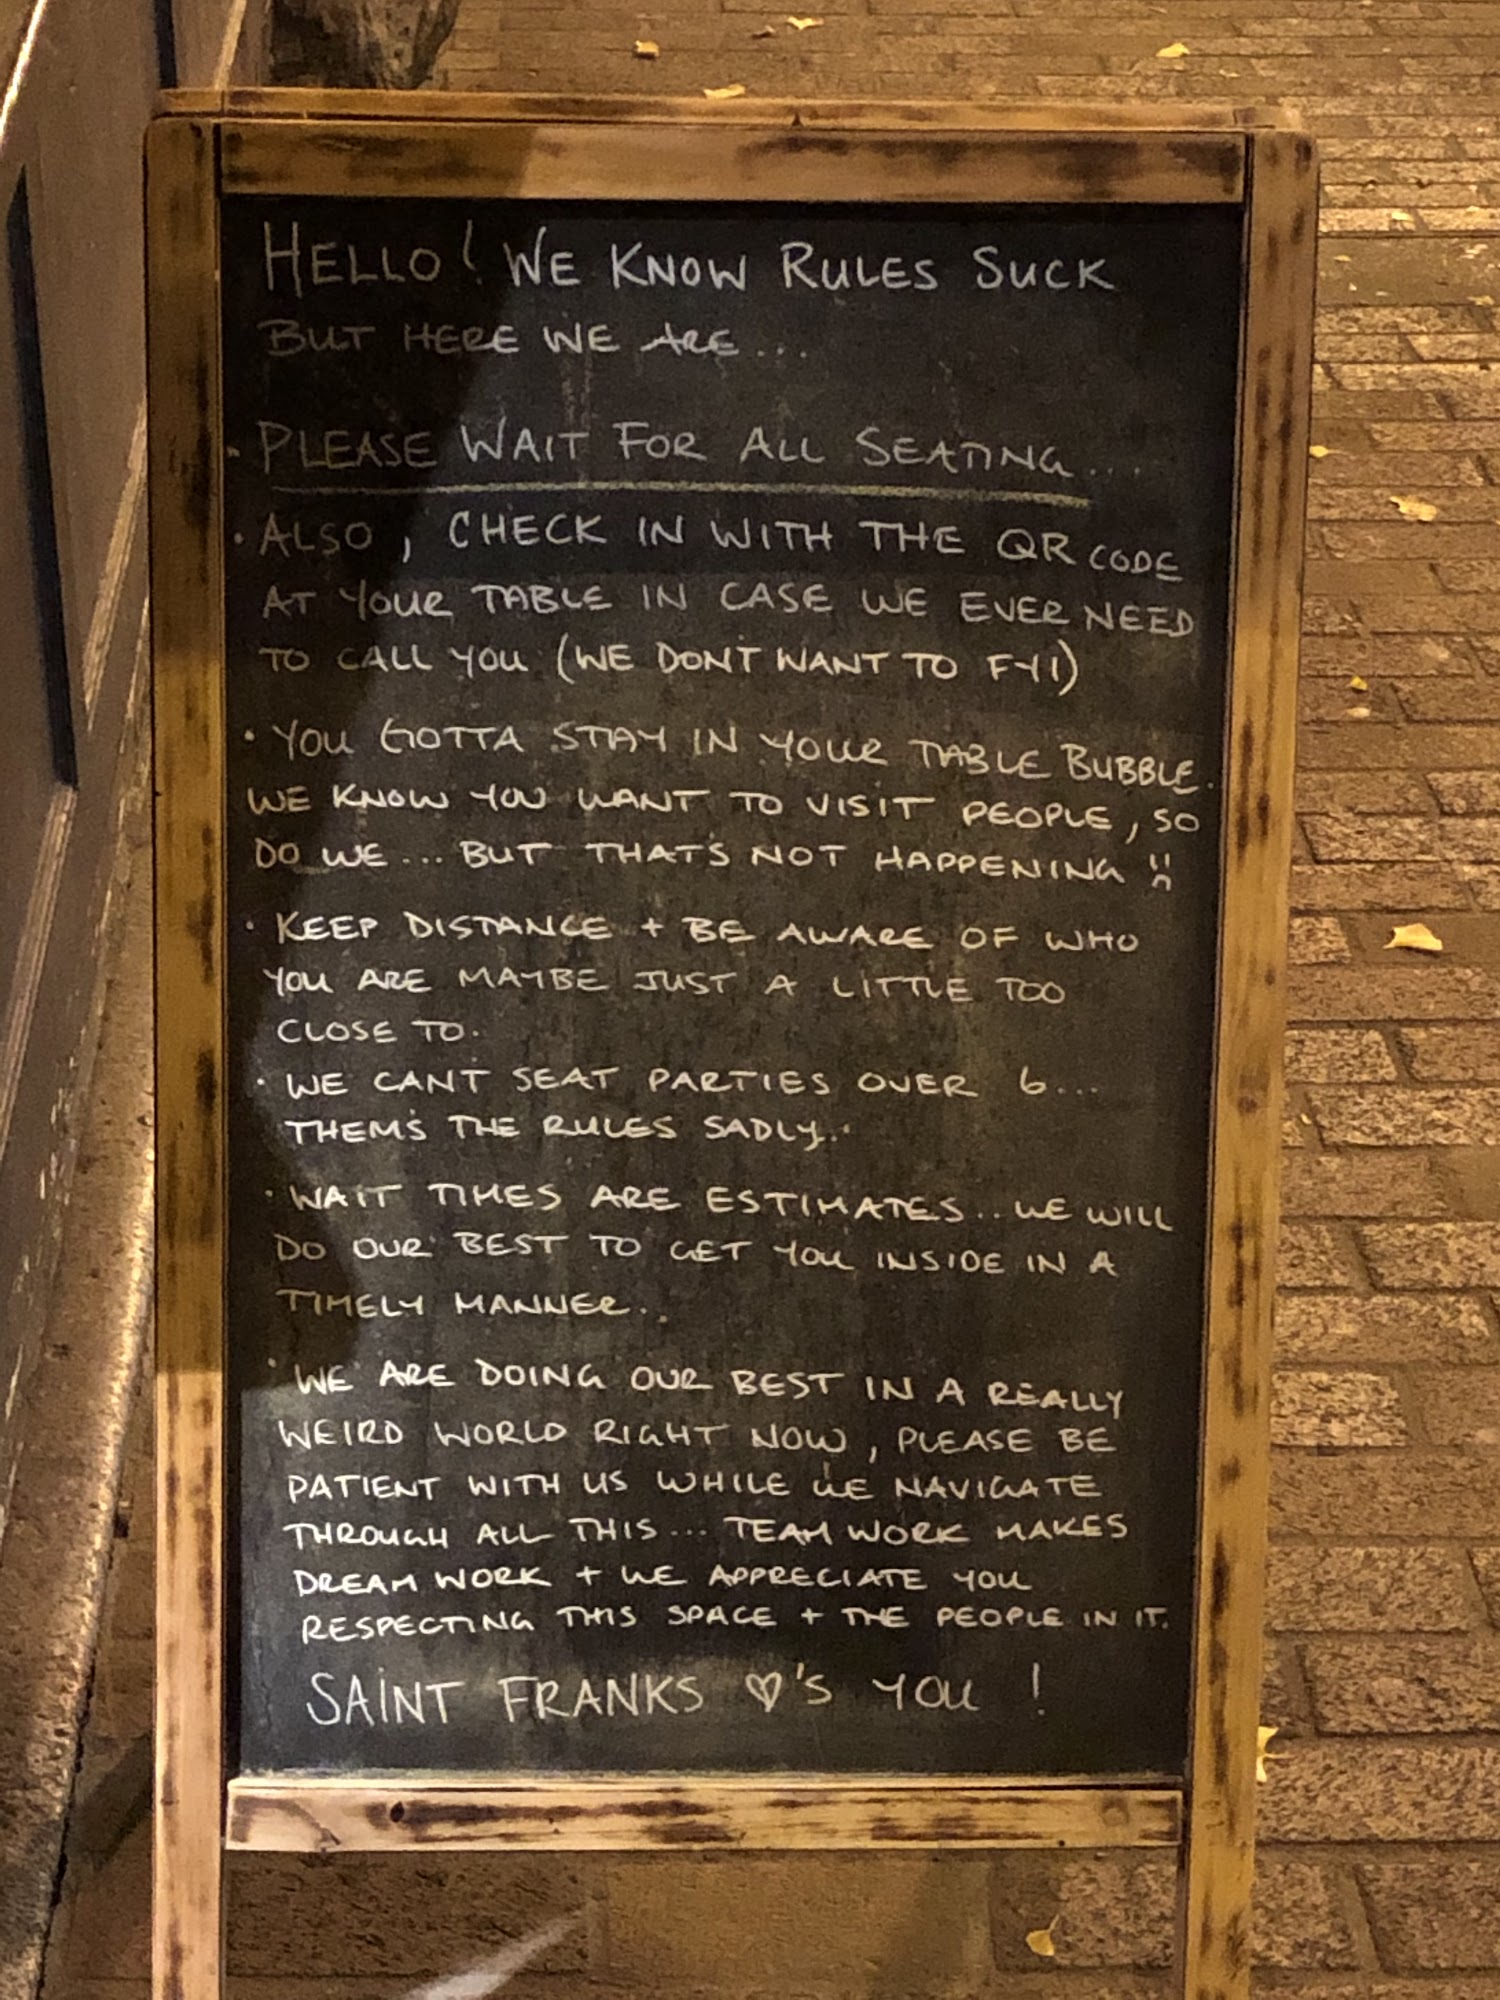 HELLO! WE KNOW RULES SUCK
BUT HERE WE ARE...
• PLEASE WAIT FOR ALL SEATING....
• ALSO, CHECK IN WITH THE QR CODE
AT YOUR TABLE IN CASE WE EVER NEED
TO CALL YOU (WE DON'T WANT TO FYI)
• YOU GOTTA STAY IN YOUR TABLE BUBBLE.
WE KNOW YOU WANT TO VISIT PEOPLE, SO
DO WE... BUT THAT'S NOT HAPPENING :(
• KEEP DISTANCE + BE AWARE OF WHO
YOU ARE MAYBE JUST A LITTLE TOO
CLOSE TO.
• WE CANT SEAT PARTIES OVER 6...
THEM'S THE RULES SADLY..
• WAIT TIMES ARE ESTIMATES... WE WILL
DO OUR BEST TO GET YOU INSIDE IN A
TIMELY MANNER..
• WE ARE DOING OUR BEST IN A REALLY
WEIRD WORLD RIGHT NOW, PLEASE BE
PATIENT WITH US WHILE WE NAVIGATE
THROUGH ALL THIS... TEAM WORK MAKES
DREAM WORK + WE APPRECIATE YOU
RESPECTING THIS SPACE + THE PEOPLE IN IT.
SAINT FRANKS ♡'S YOU!